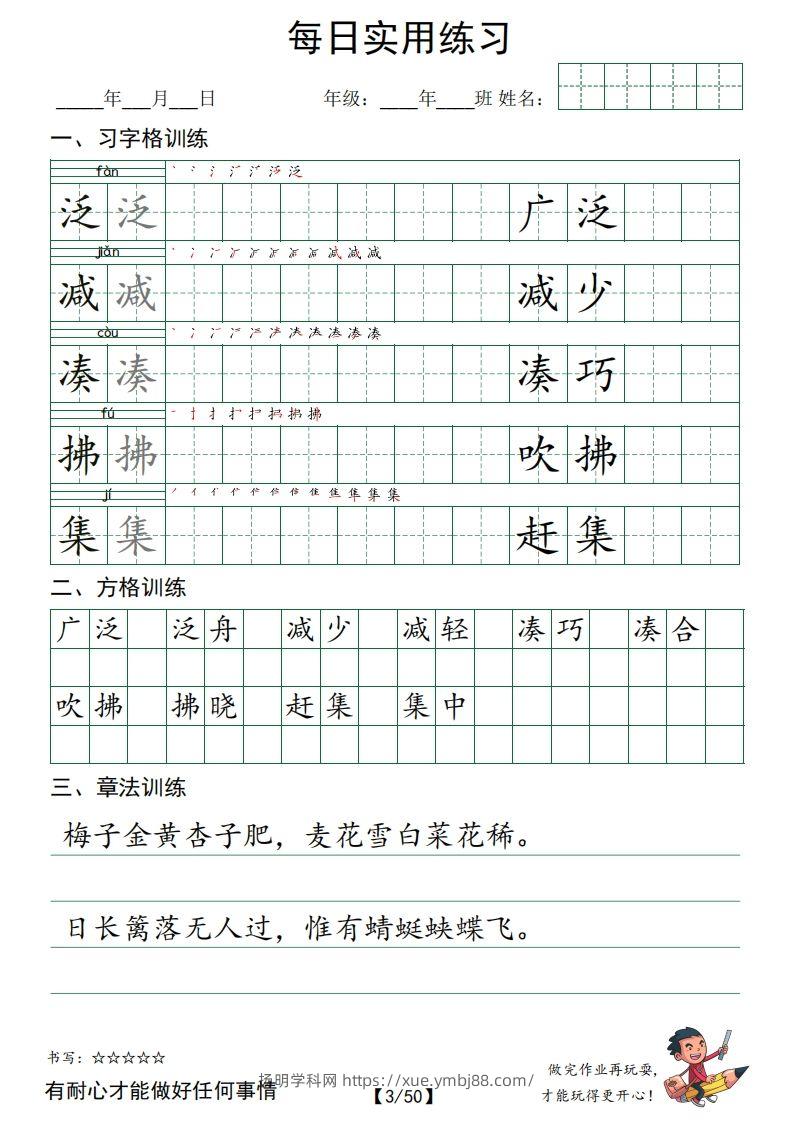 每日实用练习
_____年___月___日 年级：____年____班 姓名：
一、习字格训练
fàn
泛 泛 广 泛
jiǎn
减 减 减 少
còu
凑 凑 凑 巧
fú
拂 拂 吹 拂
jí
集 集 赶 集
二、方格训练
广泛 泛舟 减少 减轻 凑巧 凑合
吹拂 拂晓 赶集 集中
三、章法训练
梅子金黄杏子肥，麦花雪白菜花稀。
日长篱落无人过，惟有蜻蜓蛱蝶飞。
书写：☆☆☆☆☆
有耐心才能做好任何事情
扬明学科网 https://xue.ymbj88.com/
【3/50】
做完作业再玩耍，
才能玩得更开心！